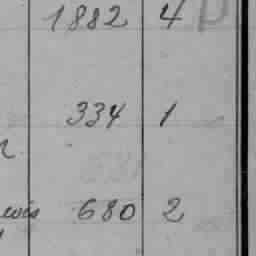 1882 4
334 1
680 2